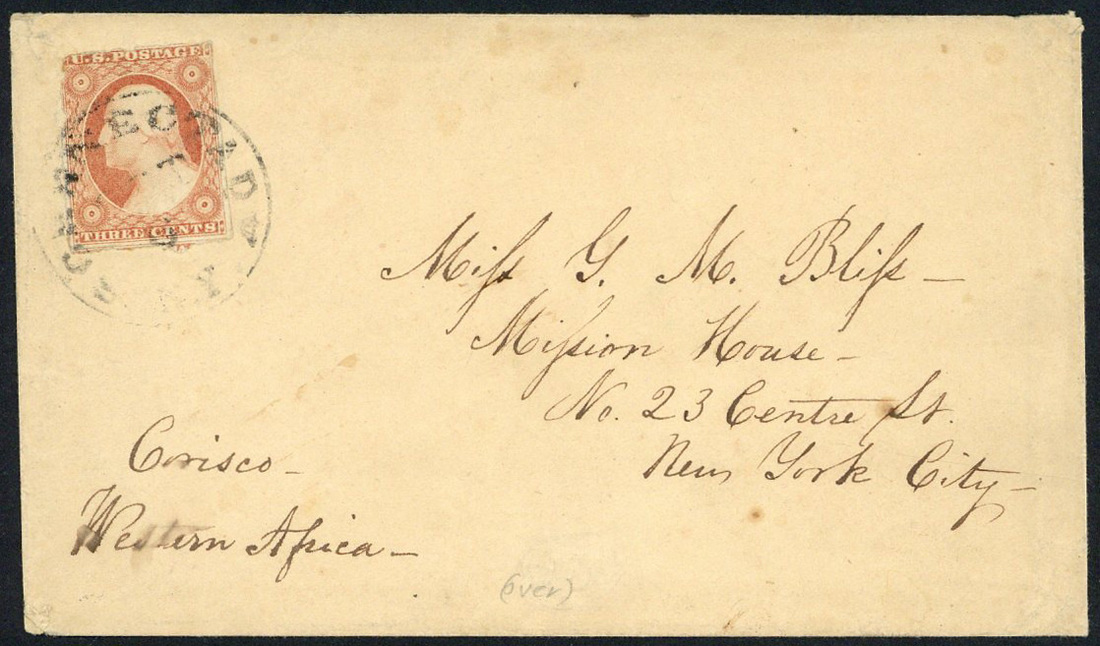 U.S. POSTAGE
THREE CENTS
SCHENECTADY
N.Y.
Miſs G. M. Bliſs –
Miſsion House –
No. 23 Centre St.
New York City –
Corisco –
Western Africa –
(over)